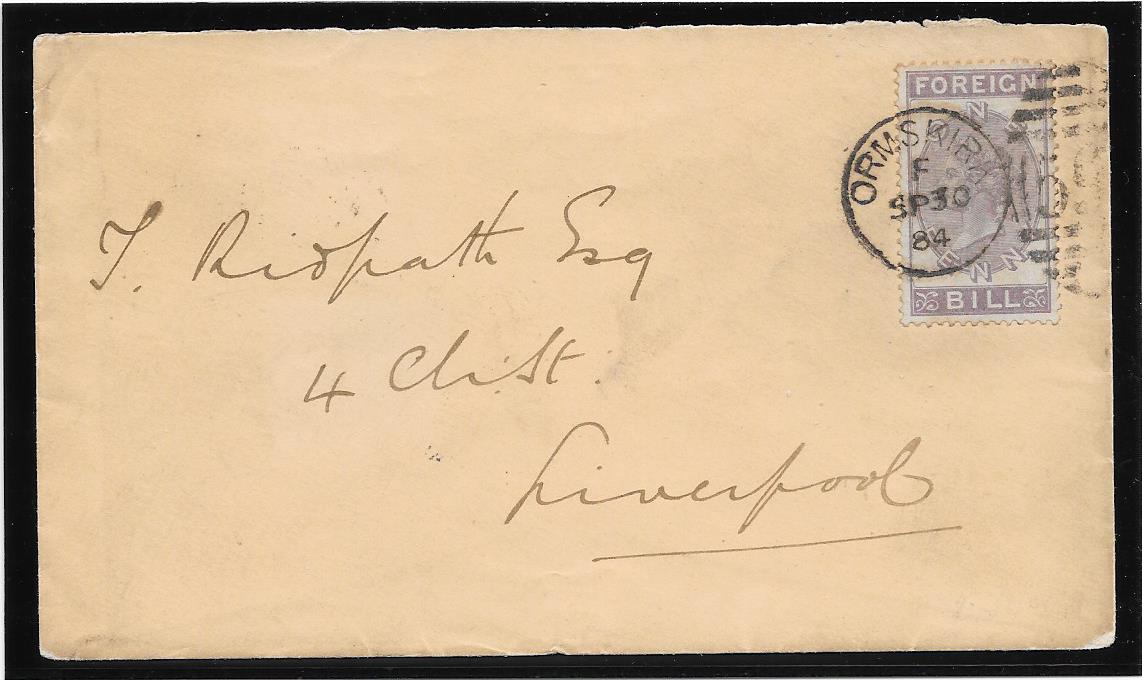 FOREIGN
BILL
ORMSKIRK
F
SP30
84
T. Ridpath Esq
4
Liverpool